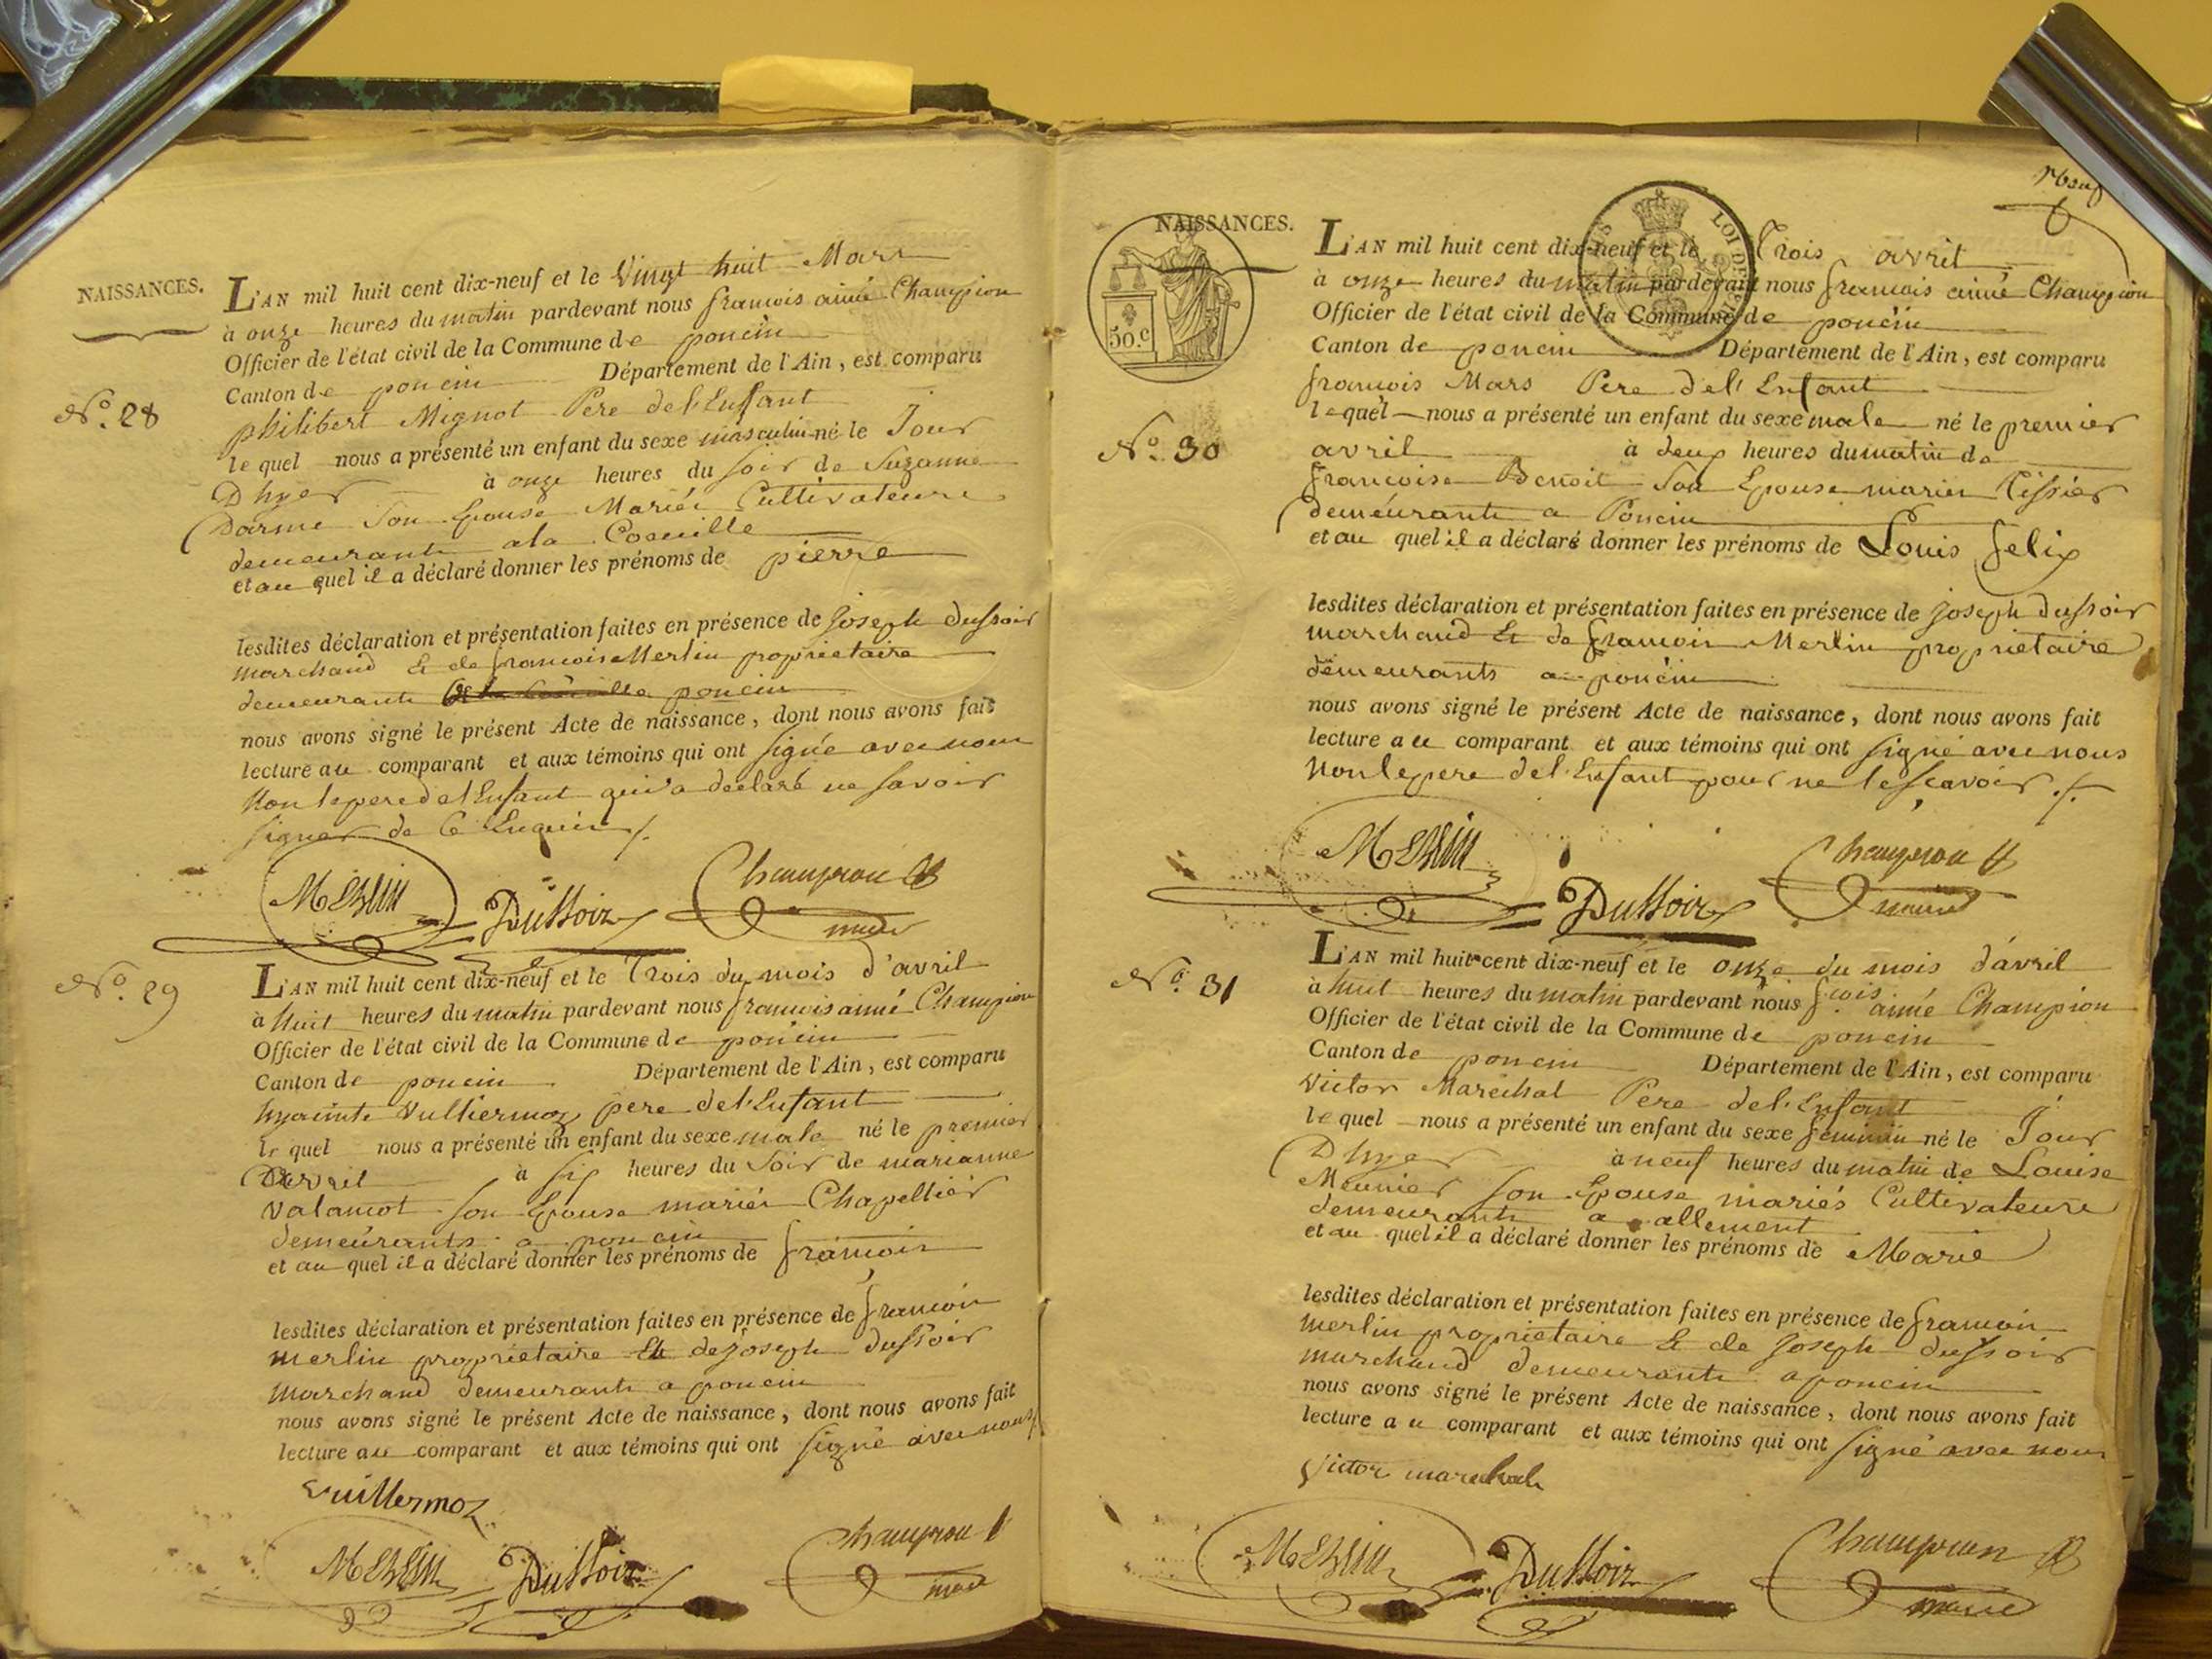 NAISSANCES.
L'AN mil huit cent dix-neuf et le Vingt huit Mars
à onze heures du matin pardevant nous francois aimé Champion
Officier de l'état civil de la Commune de poncin
Canton de poncin Département de l'Ain, est comparu
N.o 28
philibert Mignot Pere de l'Enfant
le quel nous a présenté un enfant du sexe masculin né le Jour
D'hyer à onze heures du soir de Suzanne
Darme Son Epouse Mariés Cultivateurs
demeurants a la Coeuille
et au quel il a déclaré donner les prénoms de pierre
lesdites déclaration et présentation faites en présence de Joseph dussoir
marchand & de francois Merlin proprietaire
demeurants poncin
nous avons signé le présent Acte de naissance, dont nous avons fait
lecture au comparant et aux témoins qui ont signé avec nous
Non le pere de l'Enfant qui a declaré ne savoir
signer de ce Enquis ./.
Merlin Dussoir Champion
maire
N.o 29
L'AN mil huit cent dix-neuf et le Trois du mois d'avril
à huit heures du matin pardevant nous francois aimé Champion
Officier de l'état civil de la Commune de poncin
Canton de poncin Département de l'Ain, est comparu
hyacinte Vulliermoz pere de l'Enfant
le quel nous a présenté un enfant du sexe male né le premier
D'avril à six heures du Soir de marianne
Valancot son Epouse mariés Chapellier
demeurants a poncin
et au quel il a déclaré donner les prénoms de francois
lesdites déclaration et présentation faites en présence de francois
merlin proprietaire & de Joseph dussoir
marchand demeurants a poncin
nous avons signé le présent Acte de naissance, dont nous avons fait
lecture au comparant et aux témoins qui ont signé avec nous ./.
Vuillermoz
Merlin Dussoir Champion
maire
NAISSANCES.
50.C
LOI DE
L'AN mil huit cent dix-neuf et le Trois avril
à onze heures du matin pardevant nous francois aimé Champion
Officier de l'état civil de la Commune de poncin
Canton de poncin Département de l'Ain, est comparu
francois Mars Pere de l'Enfant
le quel nous a présenté un enfant du sexe male né le premier
N.o 30
avril à deux heures du matin de
francoise Benoit Son Epouse mariés Tissier
demeurants a Poncin
et au quel il a déclaré donner les prénoms de Louis felix
lesdites déclaration et présentation faites en présence de Joseph dussoir
marchand & de francois Merlin proprietaire
demeurants a poncin
nous avons signé le présent Acte de naissance, dont nous avons fait
lecture au comparant et aux témoins qui ont signé avec nous
Non le pere de l'Enfant pour ne le scavoir ./.
Merlin Dussoir Champion
maire
N.o 31
L'AN mil huit cent dix-neuf et le onze du mois d'avril
à huit heures du matin pardevant nous f.cois aimé Champion
Officier de l'état civil de la Commune de poncin
Canton de poncin Département de l'Ain, est comparu
Victor Marechal Pere de l'Enfant
le quel nous a présenté un enfant du sexe feminin né le Jour
D'hyer à neuf heures du matin de Louise
Meunier son Epouse mariés Cultivateurs
demeurants a allement
et au quel il a déclaré donner les prénoms de Marie
lesdites déclaration et présentation faites en présence de francois
merlin proprietaire & de Joseph dussoir
marchand demeurants a poncin
nous avons signé le présent Acte de naissance, dont nous avons fait
lecture au comparant et aux témoins qui ont signé avec nous
Victor marechal
Merlin Dussoir Champion
maire